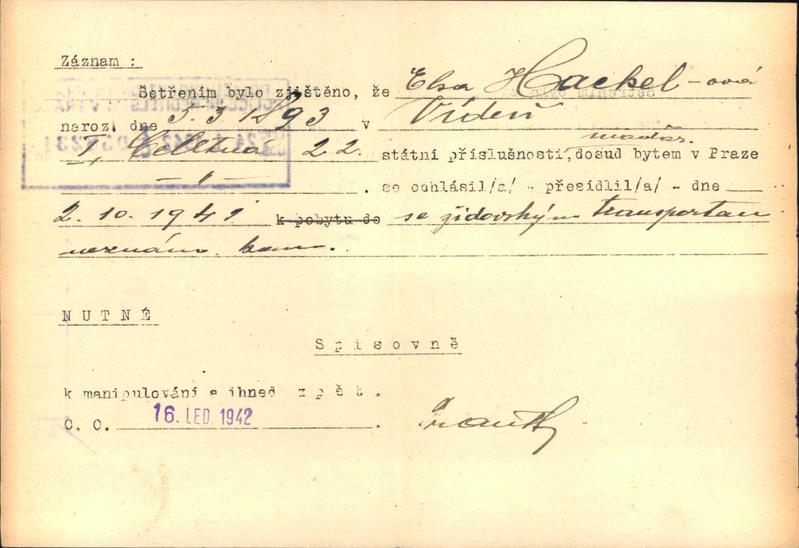 Záznam :
Šetřením bylo zjištěno, že Elsa Hackel-ová
naroz. dne 5. 3. 1893 v Vídeň
I, Celetná 22. státní příslušnosti, maďar. dosud bytem v Praze
- " - . se odhlásil/a/ - přesídlil/a/ - dne
2. 10. 1941 k pobytu do se židovským transportem
neznámo kam.
NUTNÉ
Spisovně
k manipulování a ihned zpět.
C. O. 16. LED. 1942 .